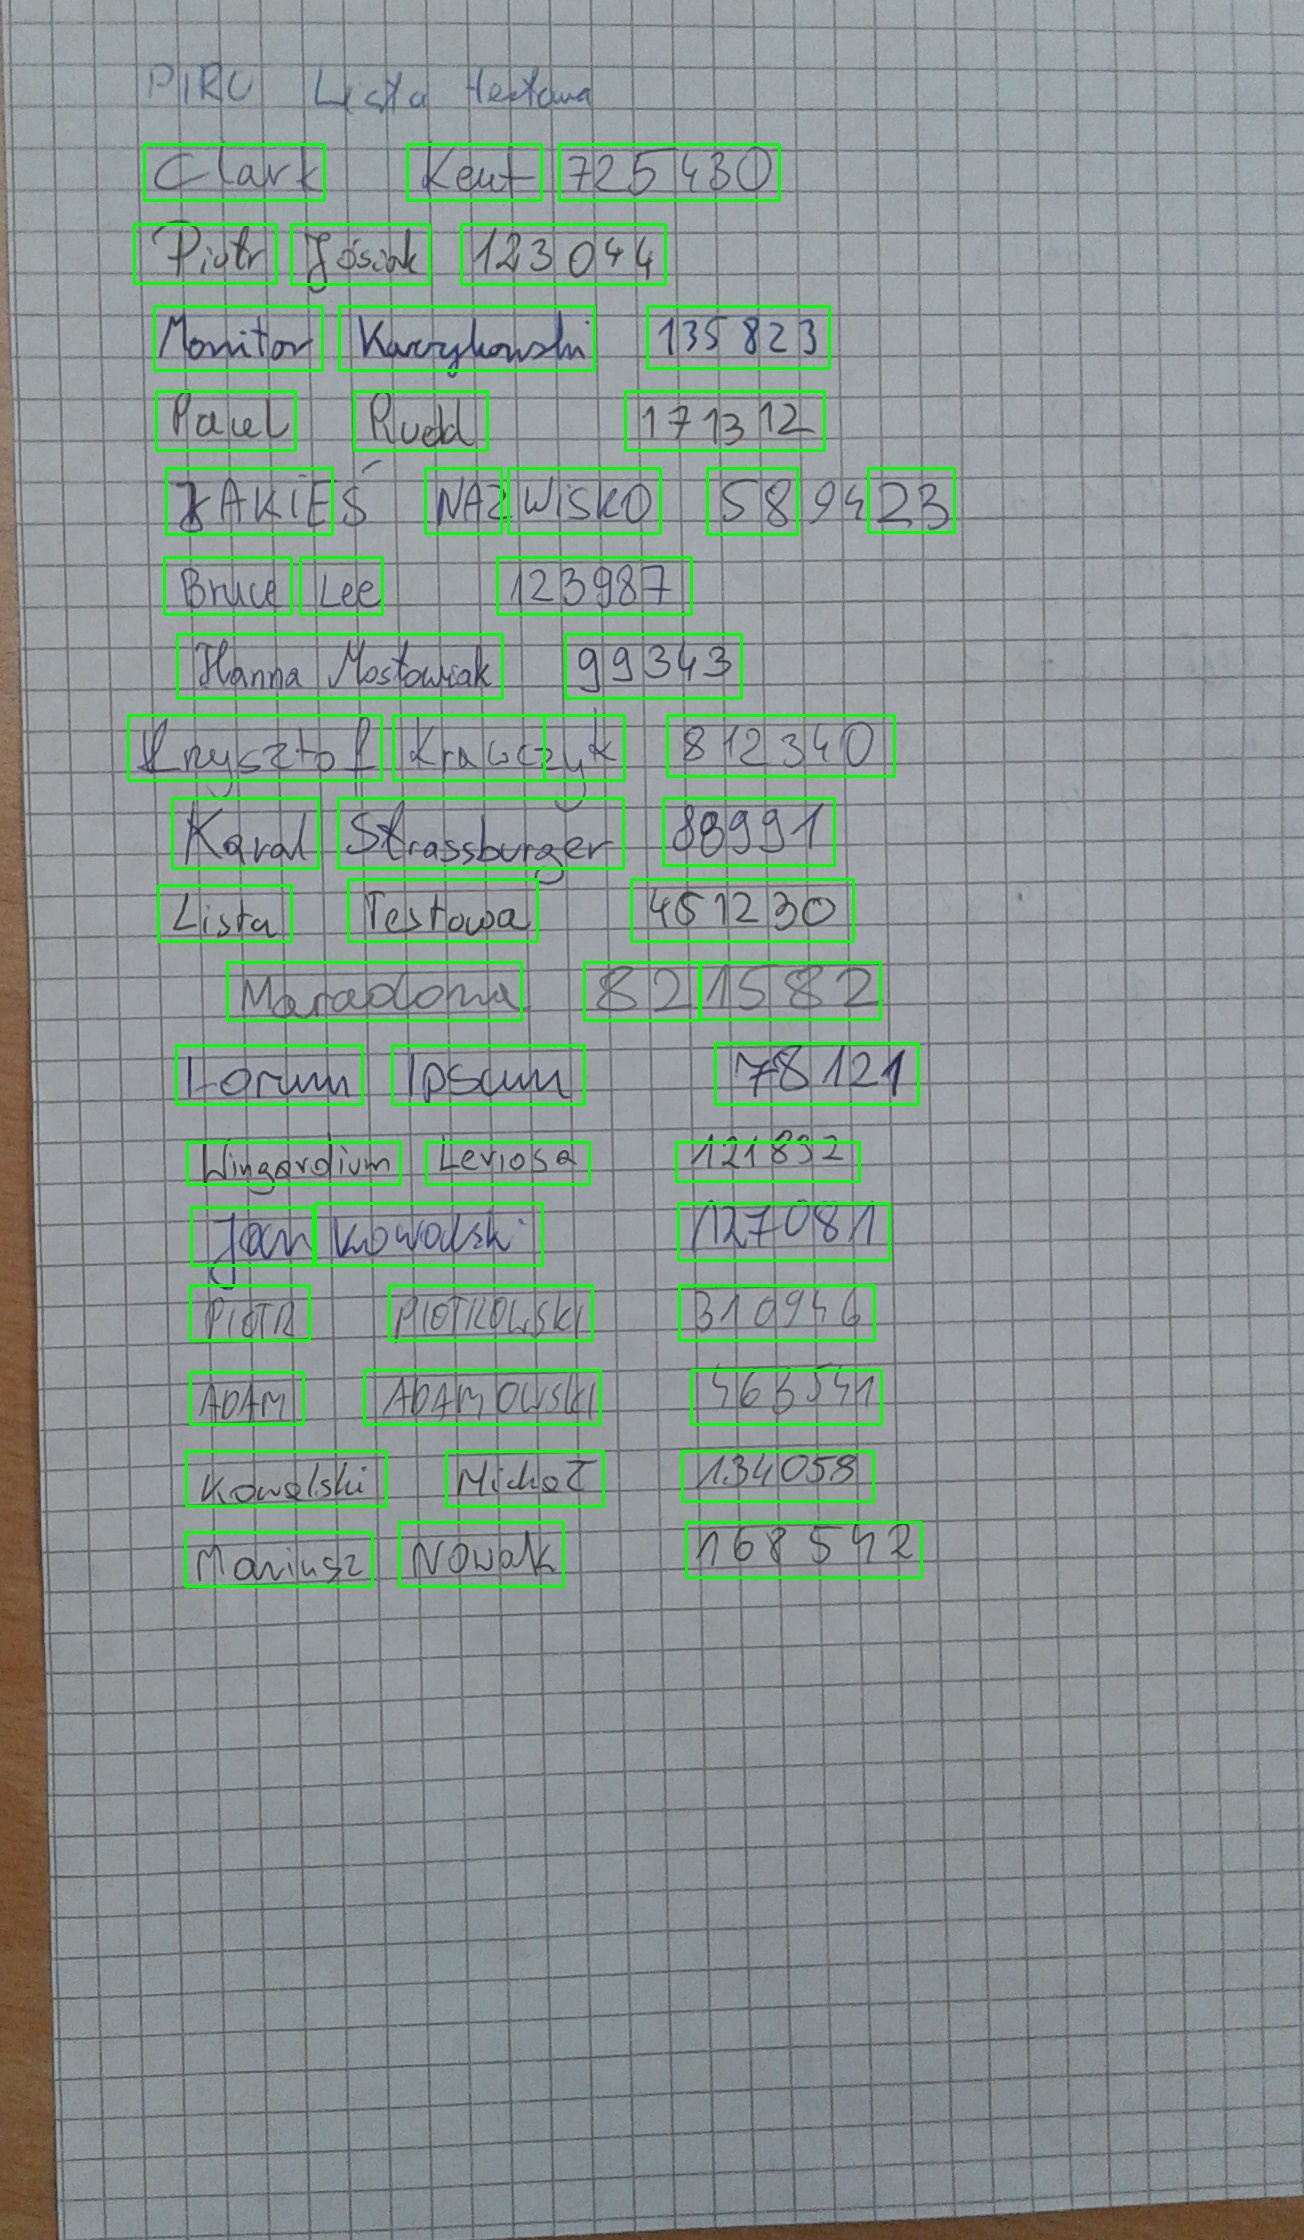 PIRO Lista testowa
Clark Kent 725430
Piotr Jósiak 123044
Monitor 135823
Paul Rudd 171312
JAKIEŚ NAZWISKO 589423
Bruce Lee 123987
Hanna Mostowiak 99343
Krysztof Krawczyk 812340
Karol Strassburger 88991
Lista Testowa 451230
Maradona 821582
Lorum Ipsum 78121
Wingardium Leviosa 121832
Jan Kowalski 127081
PIOTR PIOTROWSKI 310946
ADAM ADAMOWSKI 463541
Kowalski Michał 134058
Mariusz Nowak 168542